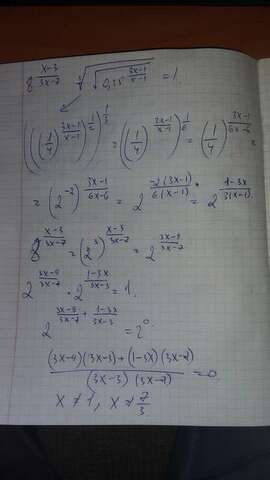 8^((x-3)/(3x-7)) ∛(√(0,25^((3x-1)/(x-1)))) = 1.
((((1/4)^((3x-1)/(x-1)))^(1/2))^(1/3) = ((1/4)^((3x-1)/(x-1)))^(1/6) = (1/4)^((3x-1)/(6x-6)) =
= (2^(-2))^((3x-1)/(6x-6)) = 2^(-2(3x-1)/6(x-1)) = 2^((1-3x)/3(x-1))
8^((x-3)/(3x-7)) = (2^3)^((x-3)/(3x-7)) = 2^((3x-9)/(3x-7))
2^((3x-9)/(3x-7)) · 2^((1-3x)/(3x-3)) = 1.
2^((3x-9)/(3x-7) + (1-3x)/(3x-3)) = 2^0
((3x-9)(3x-3)+(1-3x)(3x-7))/((3x-3)(3x-7)) = 0
x ≠ 1, x ≠ 7/3